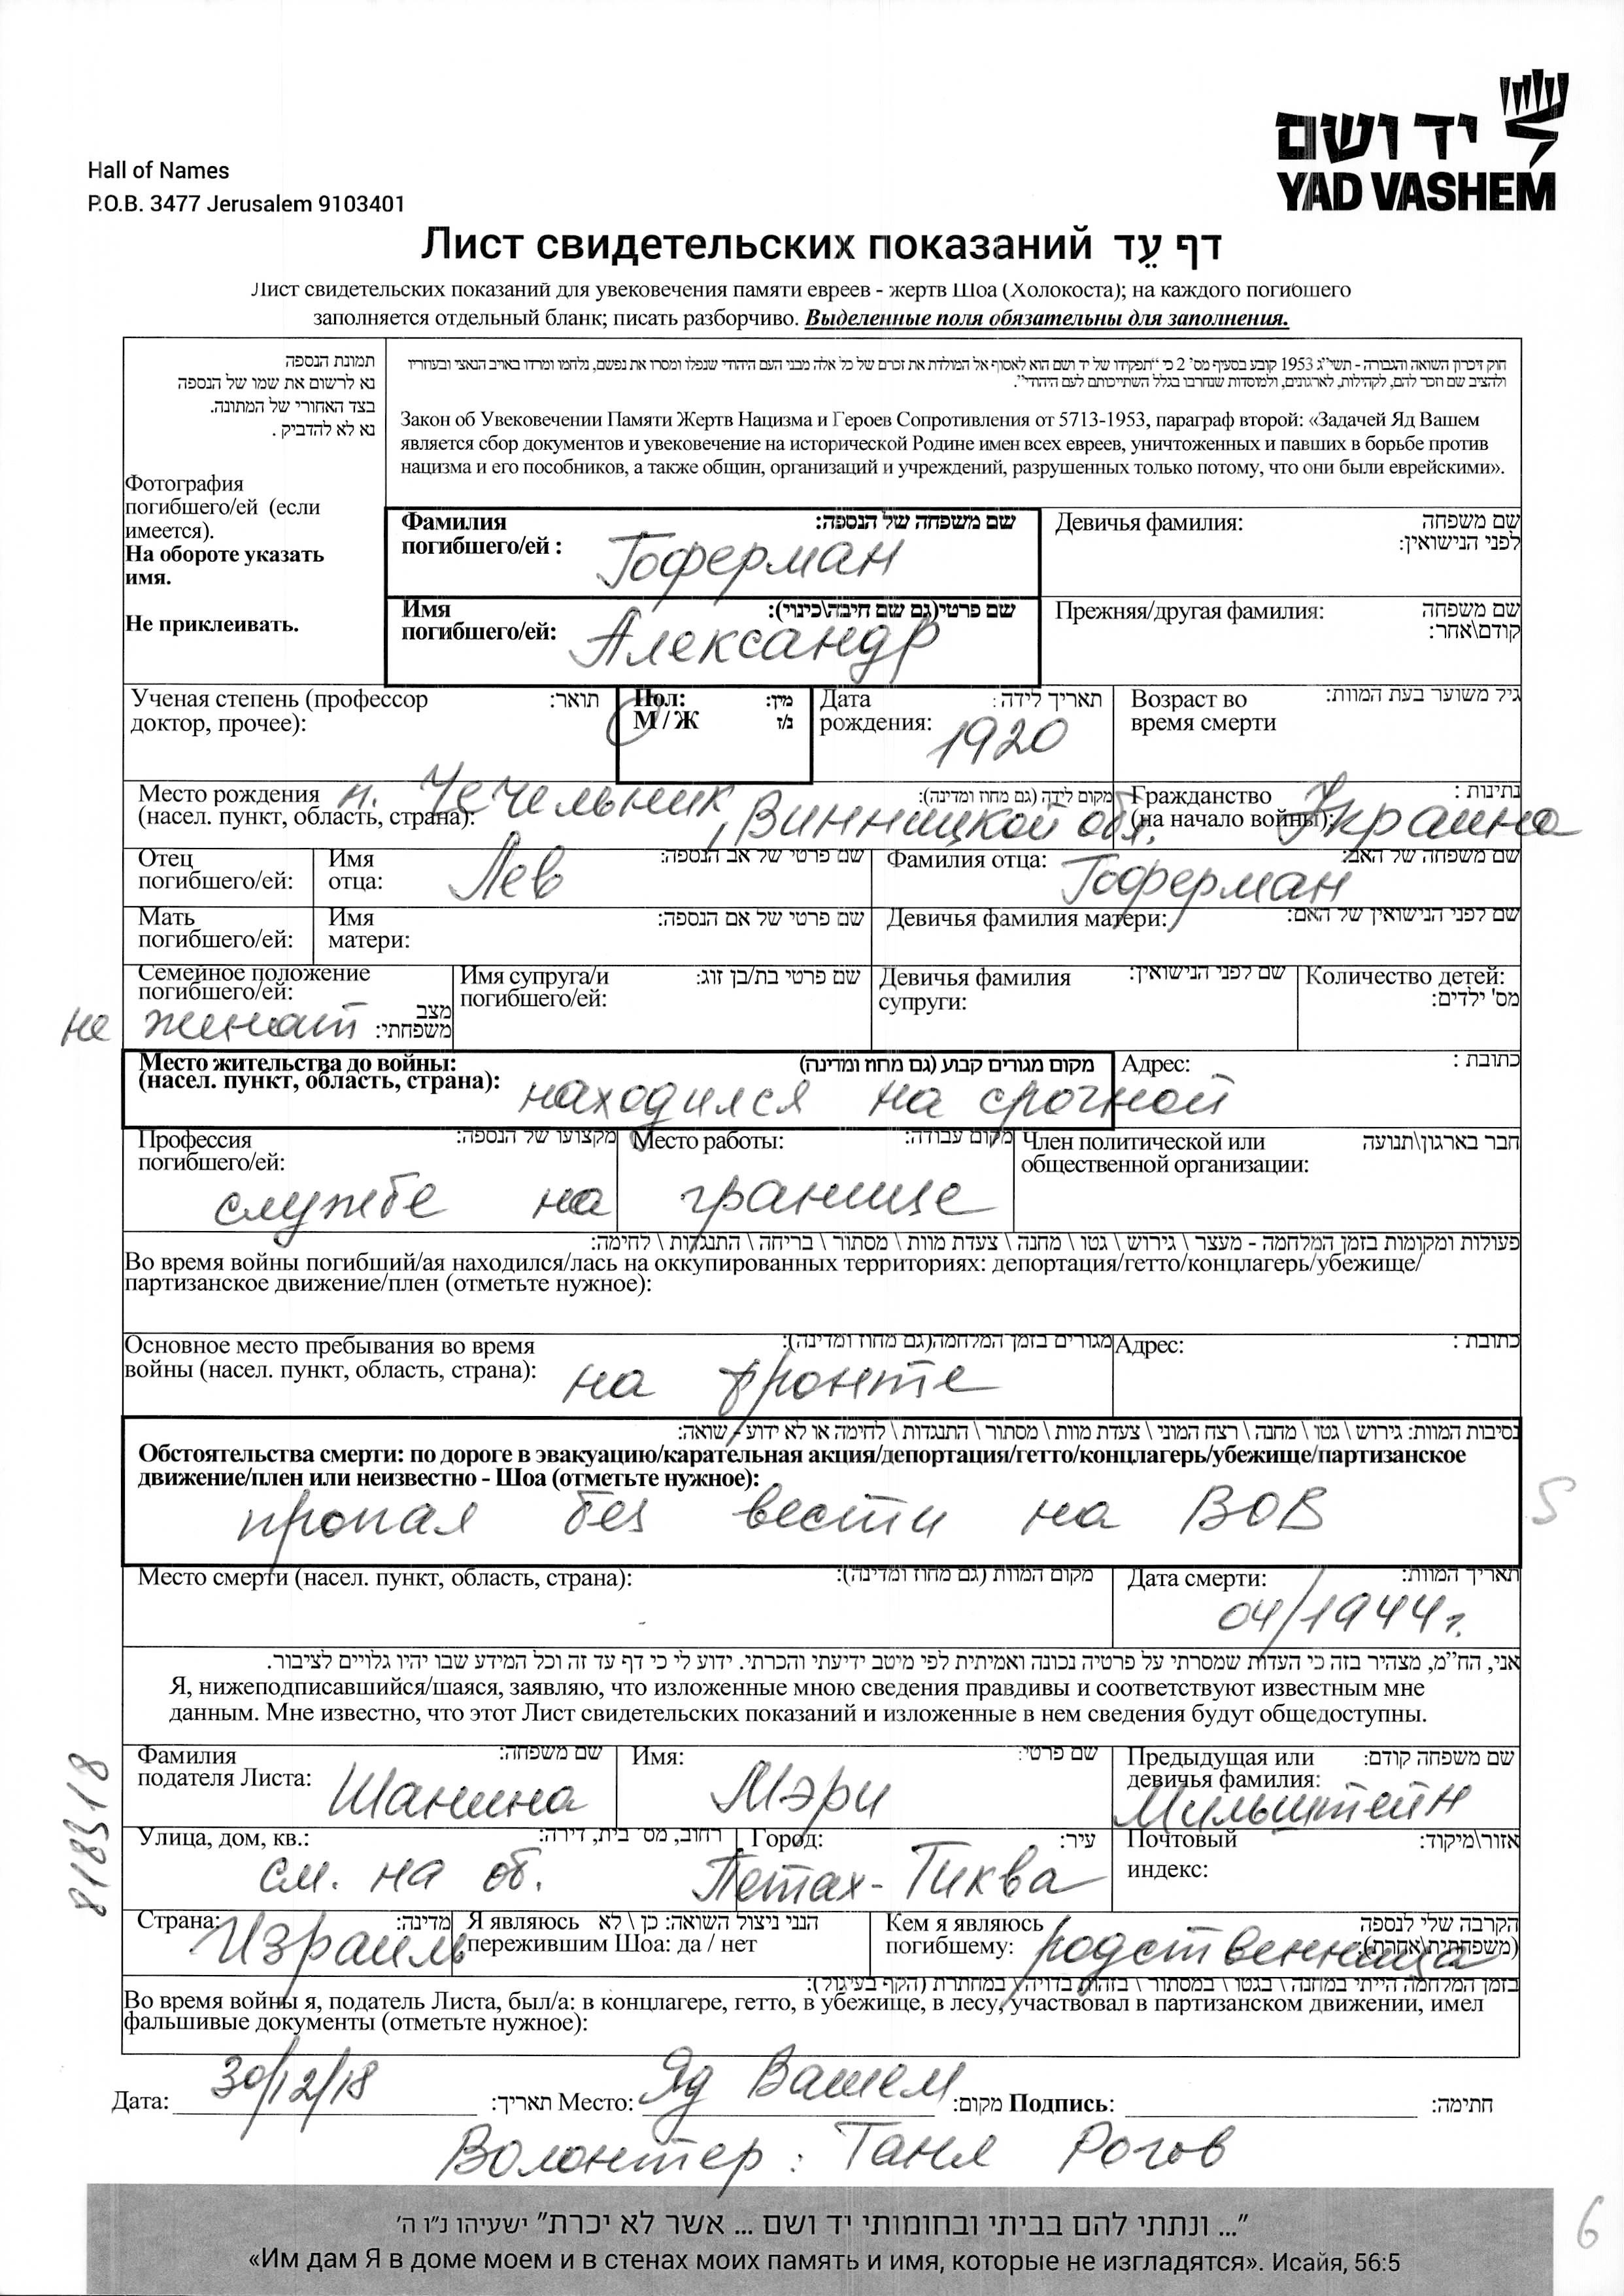 יד ושם
YAD VASHEM
Hall of Names
P.O.B. 3477 Jerusalem 9103401
Лист свидетельских показаний דף עֵד
Лист свидетельских показаний для увековечения памяти евреев - жертв Шоа (Холокоста); на каждого погибшего
заполняется отдельный бланк; писать разборчиво. Выделенные поля обязательны для заполнения.
תמונת הנספה
נא לרשום את שמו של הנספה
בצד האחורי של המתונה.
נא לא להדביק .
Фотография
погибшего/ей (если
имеется).
На обороте указать
имя.
Не приклеивать.
חוק זיכרון השואה והגבורה - תשי"ג 1953 קובע בסעיף מס' 2 כי "תפקידו של יד ושם הוא לאסוף אל המולדת את זכרם של כל אלה מבני העם היהודי שנפלו ומסרו את נפשם, נלחמו ומרדו באויב הנאצי ובעוזריו
ולהציב שם וזכר להם, לקהילות, לארגונים, ולמוסדות שנחרבו בגלל השתייכותם לעם היהודי".
Закон об Увековечении Памяти Жертв Нацизма и Героев Сопротивления от 5713-1953, параграф второй: «Задачей Яд Вашем
является сбор документов и увековечение на исторической Родине имен всех евреев, уничтоженных и павших в борьбе против
нацизма и его пособников, а также общин, организаций и учреждений, разрушенных только потому, что они были еврейскими».
Фамилия שם משפחה של הנספה:
погибшего/ей : Гоферман
Девичья фамилия: שם משפחה
לפני הנישואין:
Имя שם פרטי(גם שם חיבה\כינוי):
погибшего/ей: Александр
Прежняя/другая фамилия: שם משפחה
קודם\אחר:
Ученая степень (профессор תואר:
доктор, прочее):
Пол: מין:
М / Ж נ/ז
Дата תאריך לידה :
рождения: 1920
Возраст во גיל משוער בעת המוות:
время смерти
Место рождения מקום לידה (גם מחוז ומדינה):
(насел. пункт, область, страна): п. Чечельник, Винницкой обл.
Гражданство נתינות :
(на начало войны): Украина
Отец
погибшего/ей:
Имя שם פרטי של אב הנספה:
отца: Лев
Фамилия отца: שם משפחה של האב:
Гоферман
Мать
погибшего/ей:
Имя שם פרטי של אם הנספה:
матери:
Девичья фамилия матери: שם לפני הנישואין של האם:
Семейное положение
погибшего/ей: מצב
משפחתי: не женат
Имя супруга/и שם פרטי בת/בן זוג:
погибшего/ей:
Девичья фамилия שם לפני הנישואין:
супруги:
Количество детей:
מס' ילדים:
Место жительства до войны: מקום מגורים קבוע (גם מחוז ומדינה)
(насел. пункт, область, страна): находился на срочной
Адрес: כתובת :
Профессия מקצועו של הנספה:
погибшего/ей:
Место работы: מקום עבודה:
Член политической или חבר בארגון\תנועה
общественной организации:
службе на границе
פעולות ומקומות בזמן המלחמה - מעצר \ גירוש \ גטו \ מחנה \ צעדת מוות \ מסתור \ בריחה \ התנגדות \ לחימה:
Во время войны погибший/ая находился/лась на оккупированных территориях: депортация/гетто/концлагерь/убежище/
партизанское движение/плен (отметьте нужное):
Основное место пребывания во время מגורים בזמן המלחמה(גם מחוז ומדינה):
войны (насел. пункт, область, страна): на фронте
Адрес: כתובת :
נסיבות המוות: גירוש \ גטו \ מחנה \ רצח המוני \ צעדת מוות \ מסתור \ התנגדות \ לחימה או לא ידוע - שואה:
Обстоятельства смерти: по дороге в эвакуацию/карательная акция/депортация/гетто/концлагерь/убежище/партизанское
движение/плен или неизвестно - Шоа (отметьте нужное):
пропал без вести на ВОВ
5
Место смерти (насел. пункт, область, страна): מקום המוות (גם מחוז ומדינה):
Дата смерти: תאריך המוות:
04/1944г.
אני, הח"מ, מצהיר בזה כי העדות שמסרתי על פרטיה נכונה ואמיתית לפי מיטב ידיעתי והכרתי. ידוע לי כי דף עד זה וכל המידע שבו יהיו גלויים לציבור.
Я, нижеподписавшийся/шаяся, заявляю, что изложенные мною сведения правдивы и соответствуют известным мне
данным. Мне известно, что этот Лист свидетельских показаний и изложенные в нем сведения будут общедоступны.
Фамилия שם משפחה:
подателя Листа: Шанина
Имя: שם פרטי:
Мэри
Предыдущая или שם משפחה קודם:
девичья фамилия:
Мильштейн
Улица, дом, кв.: רחוב, מס' בית, דירה:
см. на об.
Город: עיר:
Петах-Тиква
Почтовый אזור\מיקוד:
индекс:
Страна: מדינה:
Израиль
Я являюсь הנני ניצול השואה: כן \ לא
пережившим Шоа: да / нет
Кем я являюсь הקרבה שלי לנספה
погибшему: (משפחתית\אחרת):
родственница
בזמן המלחמה הייתי במחנה \ בגטו \ במסתור \ בזהות בדויה \ במחתרת (הקף בעיגול):
Во время войны я, податель Листа, был/а: в концлагере, гетто, в убежище, в лесу, участвовал в партизанском движении, имел
фальшивые документы (отметьте нужное):
8183418
Дата: 30/12/18 תאריך: Место: Яд Вашем מקום: Подпись: חתימה:
Волонтер: Таня Рогов
"... ונתתי להם בביתי ובחומותי יד ושם ... אשר לא יכרת" ישעיהו נ"ו ה'
«Им дам Я в доме моем и в стенах моих память и имя, которые не изгладятся». Исайя, 56:5
6